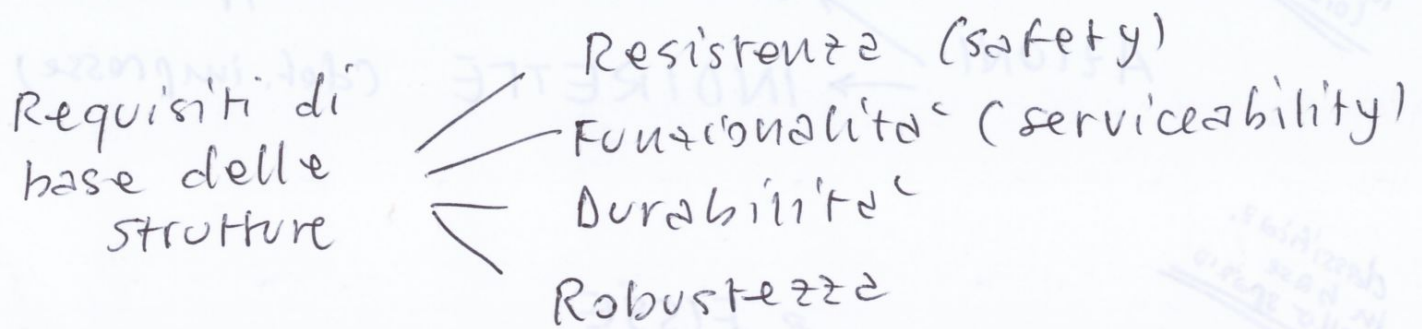 Requisiti di
base delle
strutture
Resistenza (safety)
Funzionalità (serviceability)
Durabilità
Robustezza